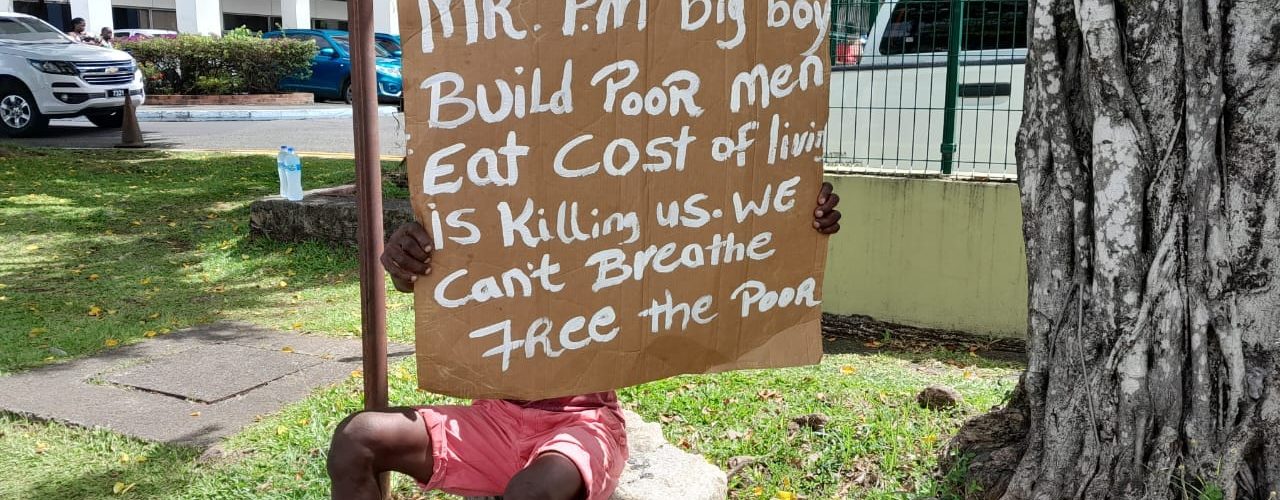 MR. P.M Big boy
Build PooR men
Eat Cost of livin
is Killing us. WE
Can't Breathe
Free the PooR
7321